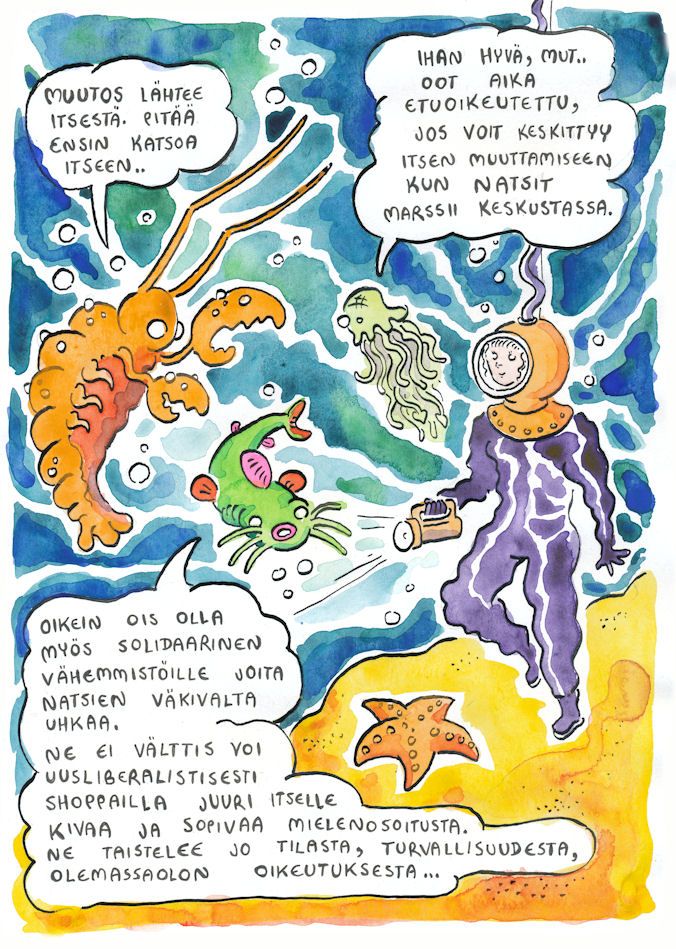 MUUTOS LÄHTEE
ITSESTÄ. PITÄÄ
ENSIN KATSOA
ITSEEN..
IHAN HYVÄ, MUT..
OOT AIKA
ETUOIKEUTETTU,
JOS VOIT KESKITTYY
ITSEN MUUTTAMISEEN
KUN NATSIT
MARSSII KESKUSTASSA.
OIKEIN OIS OLLA
MYÖS SOLIDAARINEN
VÄHEMMISTÖILLE JOITA
NATSIEN VÄKIVALTA
UHKAA.
NE EI VÄLTTIS VOI
UUSLIBERALISTISESTI
SHOPPAILLA JUURI ITSELLE
KIVAA JA SOPIVAA MIELENOSOITUSTA.
NE TAISTELEE JO TILASTA, TURVALLISUUDESTA,
OLEMASSAOLON OIKEUTUKSESTA...